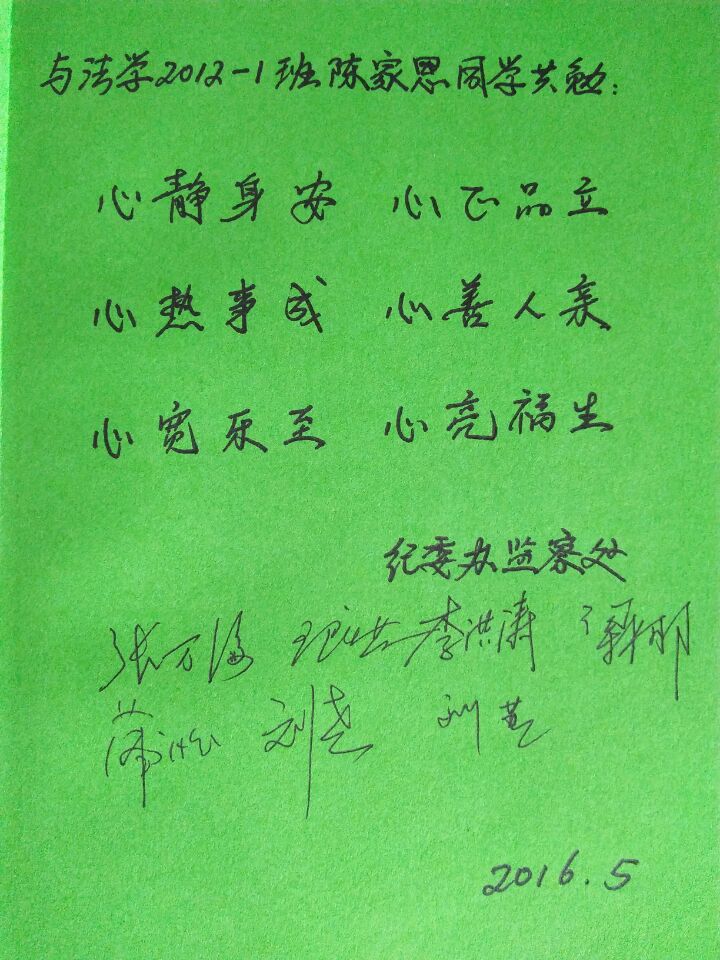 与法学2012-1班陈家恩同学共勉：
心静身安 心正品立
心热事成 心善人亲
心宽乐至 心亮福生
纪委办监察处
张万海 李洪涛
刘尧 刘芸
2016.5